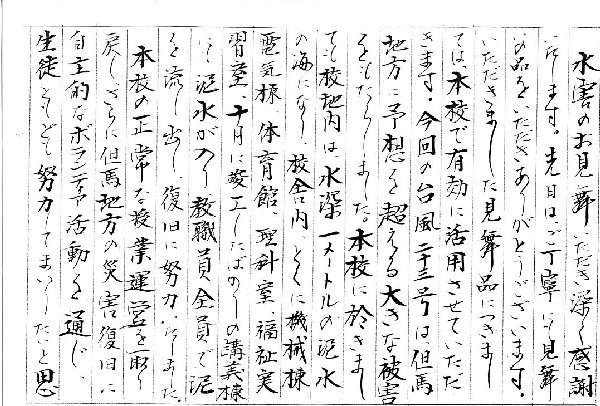 水害のお見舞いただき深く感謝
いたします。先日は、ご丁寧にも見舞
いの品をいただきありがとうございます。
いただきました見舞品につきまし
ては、本校で有効に活用させていただ
きます。今回の台風二十三号は但馬
地方に予想を超える大きな被害
をもたらしました。本校に於きまし
ても校地内は、水深一メートルの泥水
の海になり、校舎内、とくに機械棟
電気棟、体育館、理科室、福祉実
習室、十月に竣工したばかりの講義棟
にも泥水が入り、教職員全員で泥
を流し出し、復旧に努力いたしました。
本校の正常な授業運営を一日も早く
戻し、さらに但馬地方の災害復旧に
自主的なボランティア活動を通じ、
生徒ともども努力してまいりたいと思